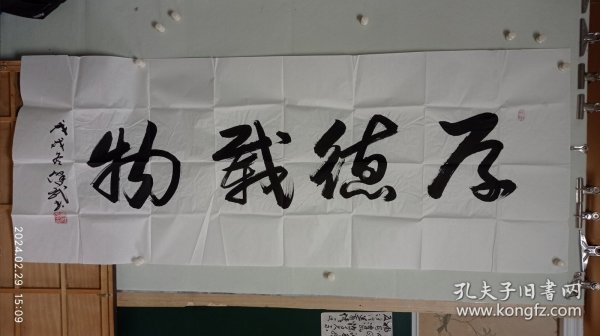 厚德载物
戊戌
2024.02.29 15:09
孔夫子旧书网
www.kongfz.com